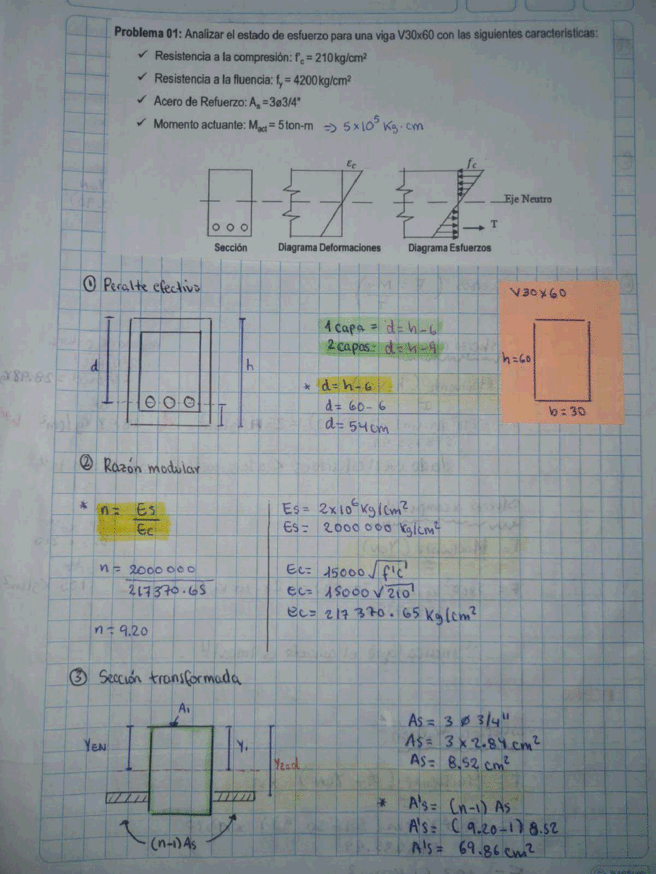 Problema 01: Analizar el estado de esfuerzo para una viga V30x60 con las siguientes características:
✓ Resistencia a la compresión: f'c = 210kg/cm²
✓ Resistencia a la fluencia: fy = 4200kg/cm²
✓ Acero de Refuerzo: As =3ø3/4"
✓ Momento actuante: Mact = 5ton-m => 5x10⁵ Kg-cm
εc
fc
Eje Neutro
T
Sección
Diagrama Deformaciones
Diagrama Esfuerzos
① Peralte efectivo
V30x60
h=60
b=30
d
h
1 capa = d=h-6
2 capas= d=h-9
* d=h-6
d= 60-6
d= 54cm
② Razón modular
* n= Es/Ec
n= 2000000/217370.65
n= 9.20
Es= 2x10⁶ Kg/cm²
Es= 2000000 Kg/cm²
Ec= 15000√f'c
ec= 15000√210
ec= 217 370.65 Kg/cm²
③ Sección transformada
A1
YEN
Y1
Y2=d
(n-1)As
As = 3 ø 3/4"
As= 3 x 2.84 cm²
As= 8.52 cm²
* A's= (n-1) As
A's= (9.20-1) 8.52
A's= 69.86 cm²